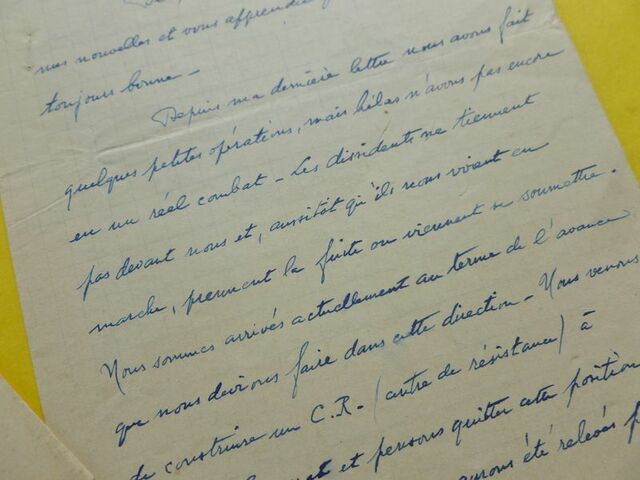 mes nouvelles et vous apprendre
toujours bonne -
Depuis ma dernière lettre nous avons fait
quelques petites opérations, mais hélas n'avons pas encore
eu un réel combat - Les dissidents ne tiennent
pas devant nous et, aussitôt qu'ils nous voient en
marche, prennent la fuite ou viennent se soumettre.
Nous sommes arrivés actuellement au terme de l'avance
que nous devions faire dans cette direction - Nous venons
de construire un C.R. - (centre de résistance) à
et pensons quitter cette position
aurons été relevés